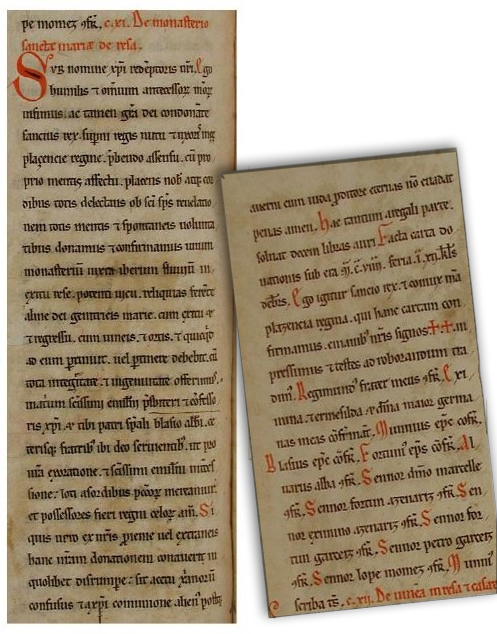 pe momez ɔfr̄. c.xi. De monasterio
sanctę marię de resa.
Svb nomine xp̄i redēptoris nr̄i. Ego
humilis & omnium antecessor̨ meor̨
infimus. ac tamen gr̄a dei condonāte
sanctius rex. sup̄ni regis nutu & uxor
placencie regine. p̄bendo assensu. cū pro
prio mentis affectu. placens nob̄ atq̨ cor
dibus totis delectaus ob sc̄i sp̄s reuelatio
nem totis mentis & spontaneis uolunta
tibus donamus & confirmamus unum
monasteriū iuxta iberum fluuiū in
extu rese. potenti uicu. reliquias ferēte
alme dei genitricis marie. cum exitu &
& regressu. cum uineis, & ortis, & quicq̨d
ad eum ptinuit. uel ptinere debebit. cū
tota integritate & ingenuitate offerimus
emiliani p̄sbiteri & cōfesso
ris xp̄i. & tibi patri sp̄ali blasio abb̄i. ce
terisq̨ fratrib̨ ibi deo seruientib̨. ut pro
nr̄a exoratione. & emiliani int̄ces
sione: loti a sordibus pecc̄or̨ mereamur
et possessores fieri regni celor̨ am̄. Si
quis uero ex nr̄is p̄pinquis uel extraneis
hanc nr̄am donationem conauerit in
quolibet disrumpe: sit a cetu xp̄ianor̄
confusus & a xp̄i communione alien
auerni cum iuda p̄ditore eternas nō euadat
penas amen. hac tantum a regali parte.
soluat decem libras auri Facta carta do
nationis sub era M. C. viiii. feria. i. xii. kl̄s
Ego igitur sancio rex. & coniux mā
placencia regina. qui hanc cartam con
firmamus. manib̨ nr̄is signos ++ in
pressimus & testes ad roborandum tra
dim̄. Regimundo frater meus ɔfr̄. Exi
mina. & ermesilda. & dn̄a maior germa
nas meas cōfirmāt. Munnius ep̄c cōfr̄.
Blasius ep̄c cōfr̄. Fortuni ep̄s cōfr̄. Al
uarus alba ɔfr̄. Sennor dm̄o marcelle
ɔfr̄. Sennor fortun azenariz ɔfr̄. Sen
nor eximino azenariz ɔfr̄. Sennor for
tun garceiz ɔfr̄. Sennor petro garceiz
ɔfr̄. Sennor lope momez ɔfr̄. Munni
scriba ts̄. c. xii. De uinea in resa & casare